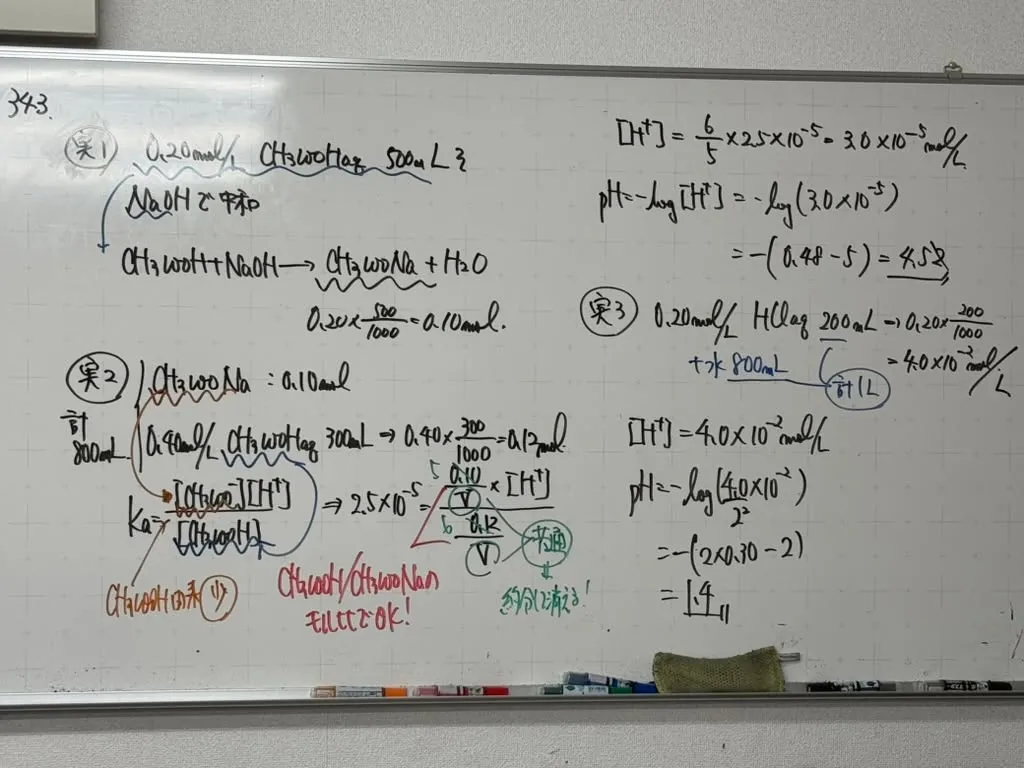 343.
実1 0.20mol/L CH3COOHaq 500mLを
NaOHで中和
CH3COOH+NaOH→CH3COONa+H2O
0.20×500/1000=0.10mol.
実2 CH3COONa:0.10mol
計800mL
0.40mol/L CH3COOHaq 300mL→0.40×300/1000=0.12mol
Ka=[CH3COO⁻][H⁺]/[CH3COOH]
⇒2.5×10⁻⁵=0.10/V×[H⁺]/0.12/V
5
6
共通
約分して消える!
CH3COOH由来少
CH3COOH/CH3COONaの
モル比でOK!
[H⁺]=6/5×2.5×10⁻⁵=3.0×10⁻⁵mol/L
pH=-log[H⁺]=-log(3.0×10⁻⁵)
=-(0.48-5)=4.52
実3 0.20mol/L HClaq 200mL→0.20×200/1000
+水800mL
計1L
=4.0×10⁻²mol/L
[H⁺]=4.0×10⁻²mol/L
pH=-log(4.0×10⁻²)
2²
=-(2×0.30-2)
=1.4